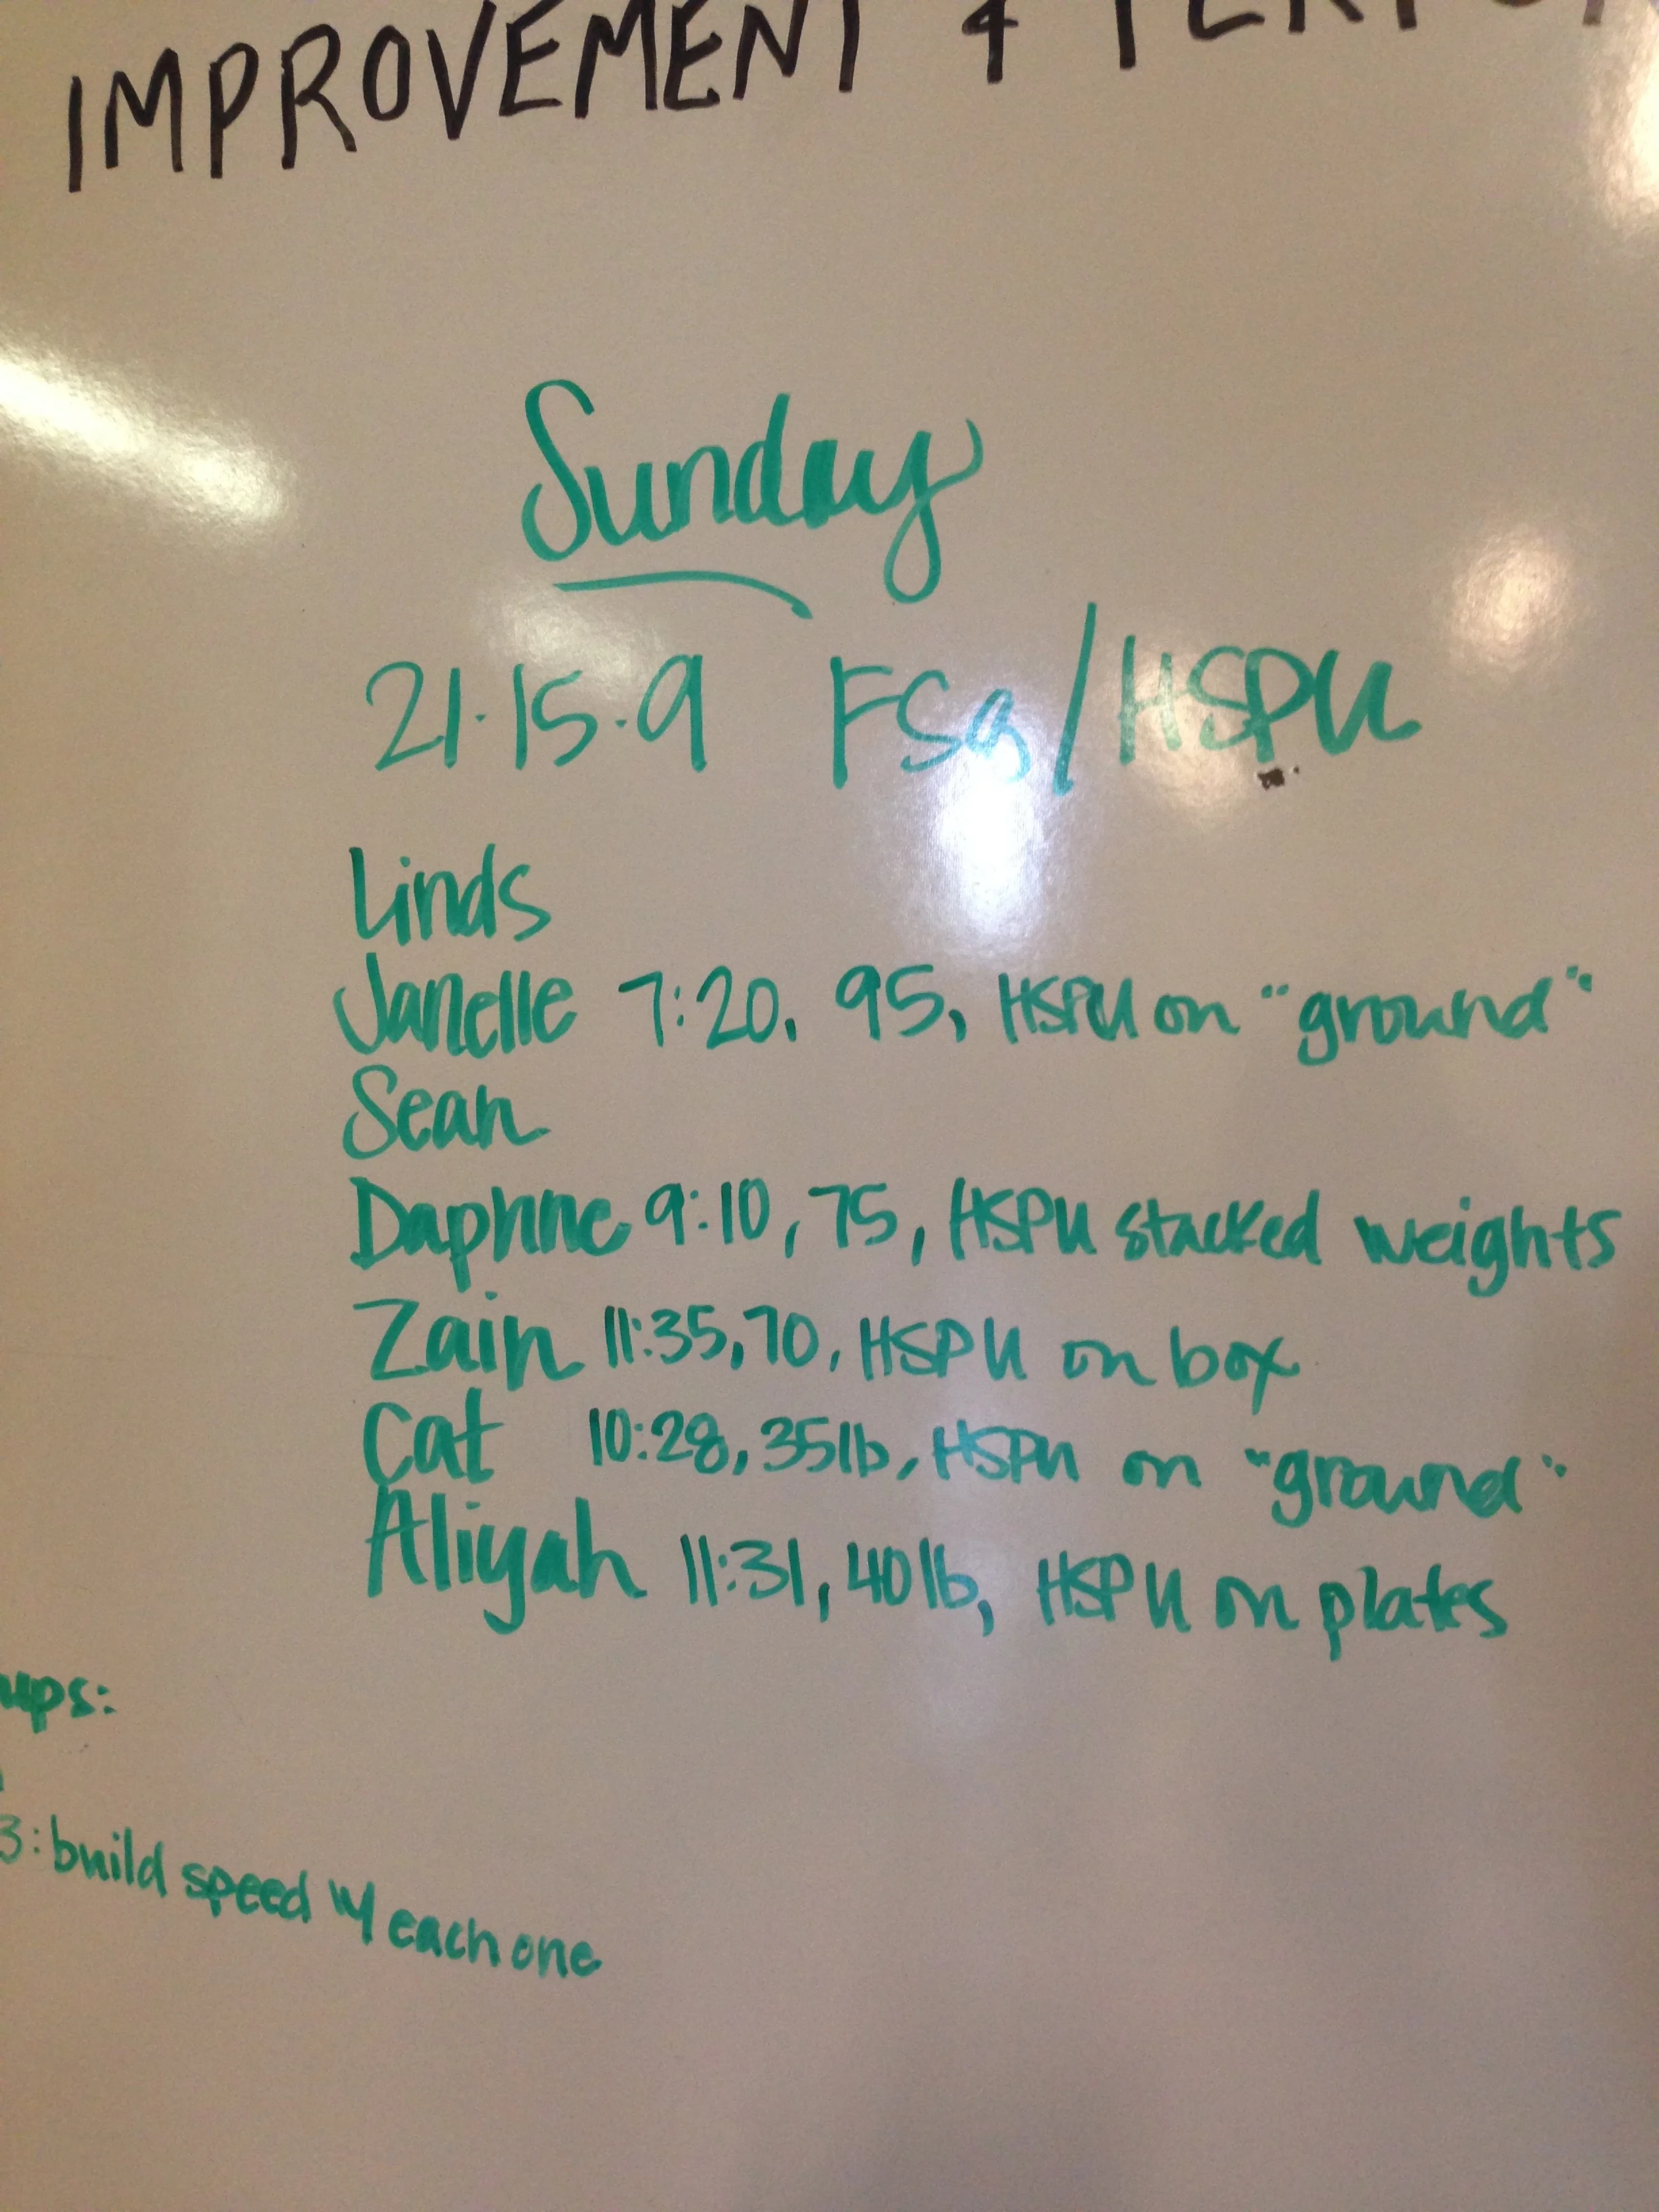 IMPROVEMENT &
Sunday
21·15·9 FSq/HSPU
Linds
Janelle 7:20, 95, HSPU on "ground"
Sean
Daphne 9:10, 75, HSPU stacked weights
Zain 11:35, 70, HSPU on box
Cat 10:28, 35lb, HSPU on "ground"
Aliyah 11:31, 40lb, HSPU on plates
ups:
3: build speed w/ each one